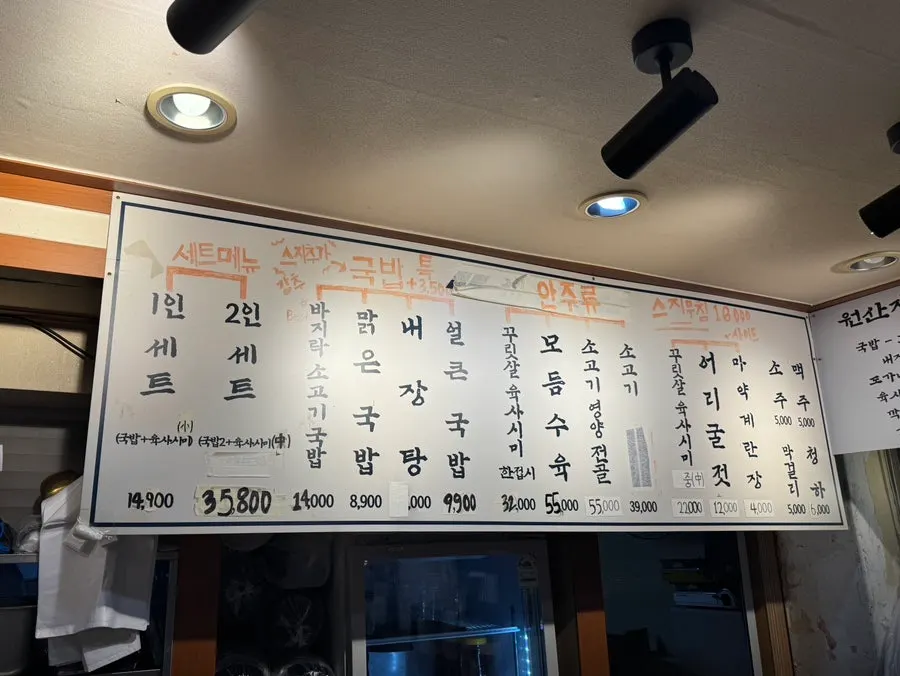 세트메뉴
1인 세트
(小)
(국밥+육사시미)
14,900
2인 세트
(국밥2+육사시미(中))
35,800
스지추가
국밥 특
바지락소고기국밥
14,000
맑은국밥
8,900
내장탕
,000
얼큰국밥
9,900
안주류
꾸릿살 육사시미
한접시
32,000
모듬수육
55,000
소고기영양전골
55,000
소고기
39,000
스지무침 18,000
사이드
꾸릿살 육사시미
중(中)
22,000
어리굴젓
12,000
마약계란장
4,000
소주
5,000
맥주
5,000
막걸리
5,000
청하
6,000
국밥 -